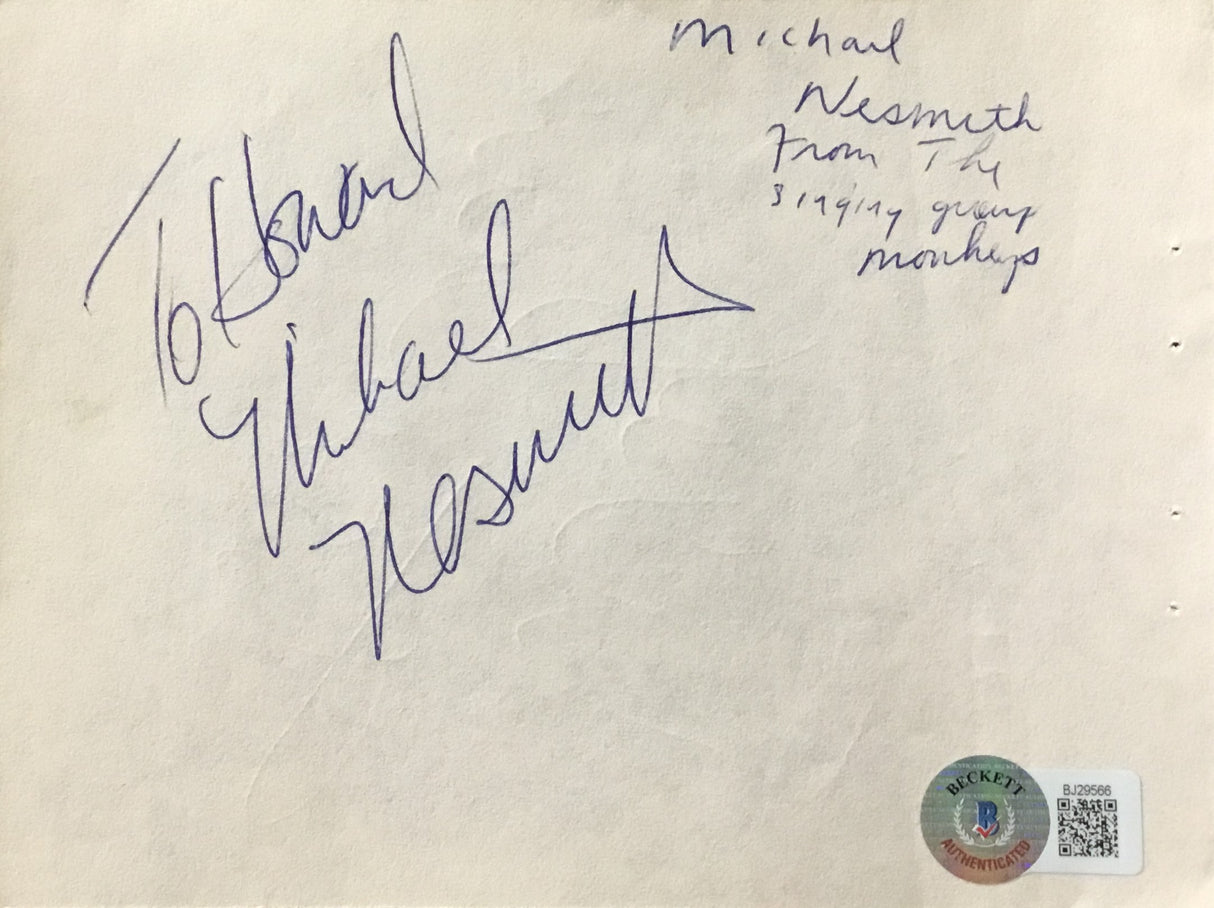 Michael
Nesmith
From The
singing group
monkeys
To Howard
Michael
Nesmith
BECKETT
B
AUTHENTICATED
BJ29566